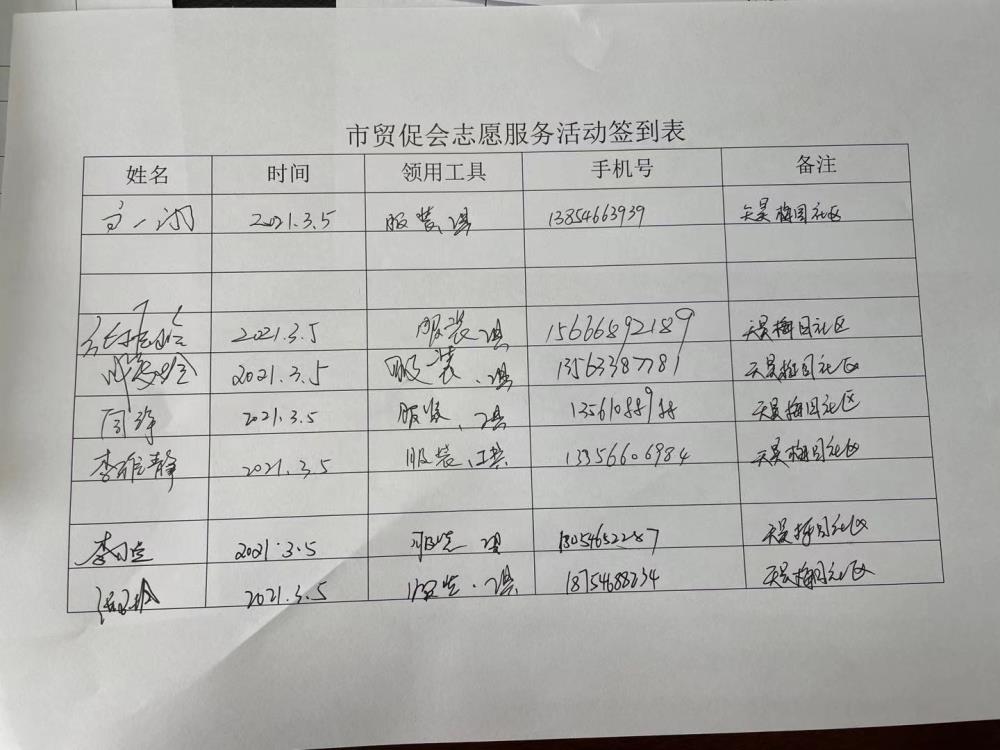 市贸促会志愿服务活动签到表
姓名 时间 领用工具 手机号 备注
2021.3.5 服装、工具 13854663939 天昊梅园社区
2021.3.5 服装、工具 15666892189 天昊梅园社区
2021.3.5 服装、工具 13563387781 天昊梅园社区
周静 2021.3.5 服装、工具 13561088988 天昊梅园社区
李雅静 2021.3.5 服装、工具 13356606984 天昊梅园社区
2021.3.5 服装、工具 13054652287 天昊梅园社区
2021.3.5 服装、工具 18754688234 天昊梅园社区